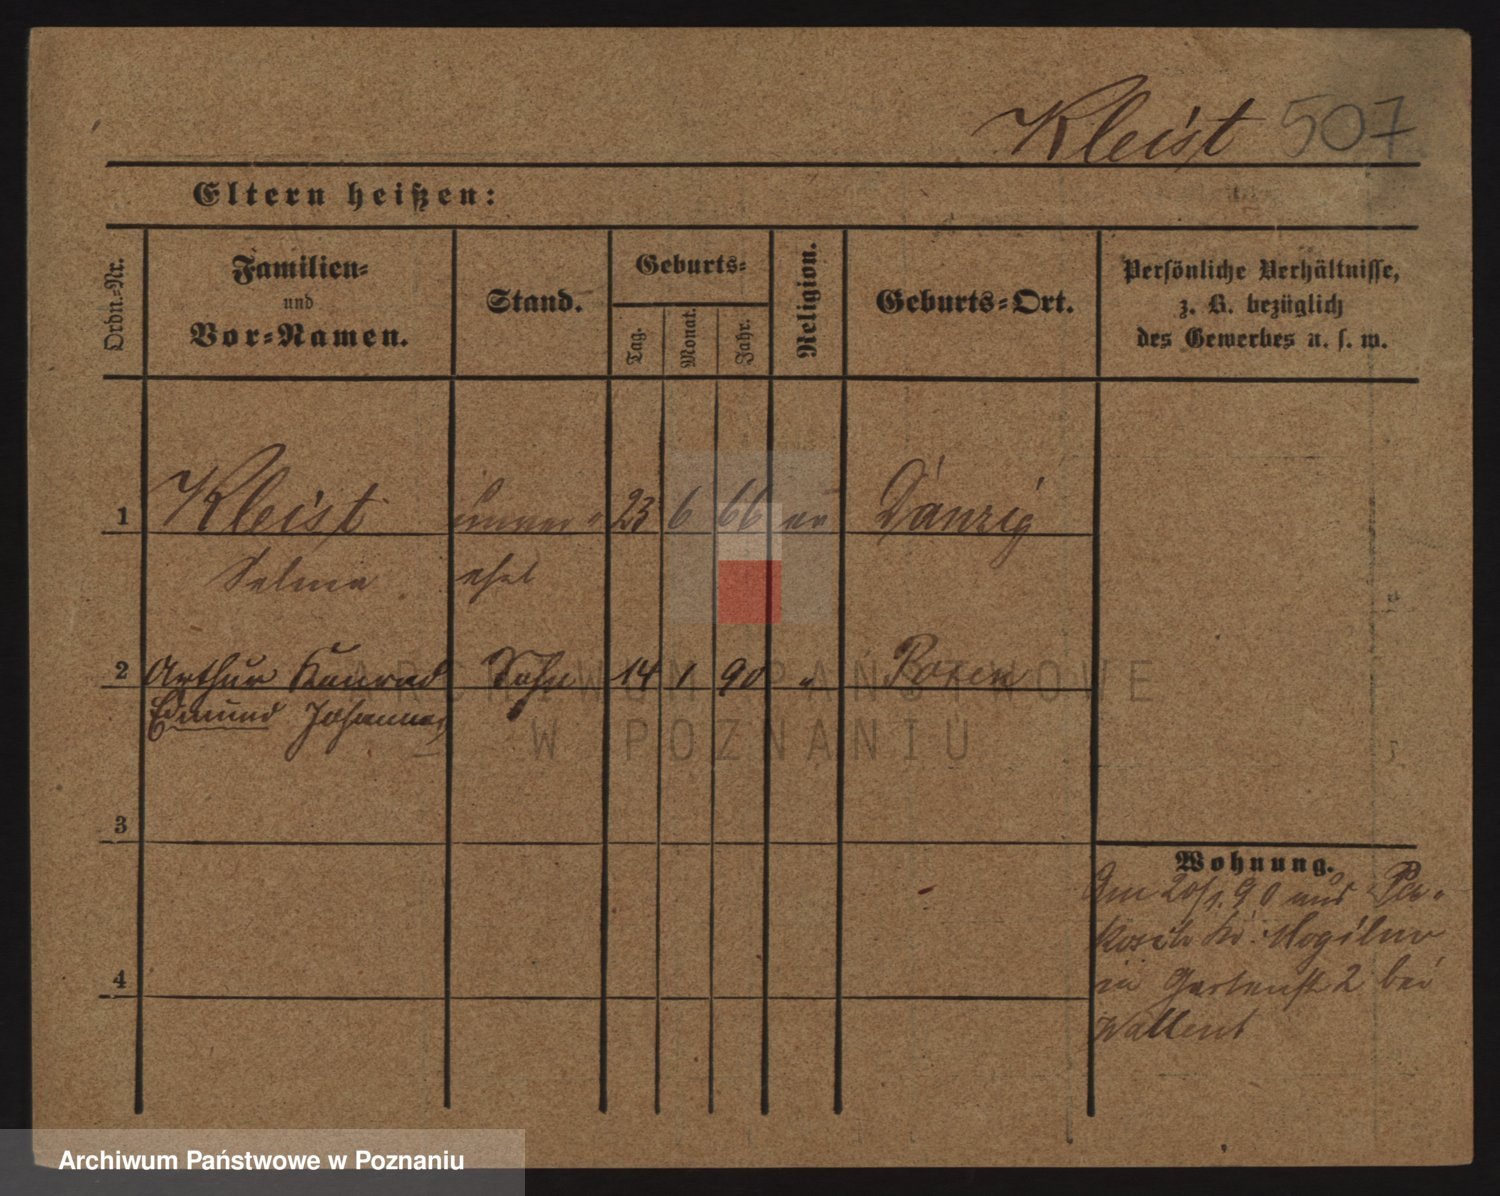 Kleist 507
Eltern heißen:
Ordn.-Nr.
Familien-
und
Vor-Namen.
Stand.
Geburts-
Tag.
Monat.
Jahr.
Religion.
Geburts-Ort.
Persönliche Verhältnisse,
z. B. bezüglich
des Gewerbes u. s. w.
1 Kleist unver= 23 6 66 ev Danzig
Selma ehel
2 Arthur Konrad Sohn 14 1 90 " Posen
Edmund Johannes
3
4
Wohnung.
Am 20/1. 90 aus Pa-
kosch Kr. Mogilno
in Gartenstr 2 bei
ARCHIWUM PAŃSTWOWE
W POZNANIU
Archiwum Państwowe w Poznaniu